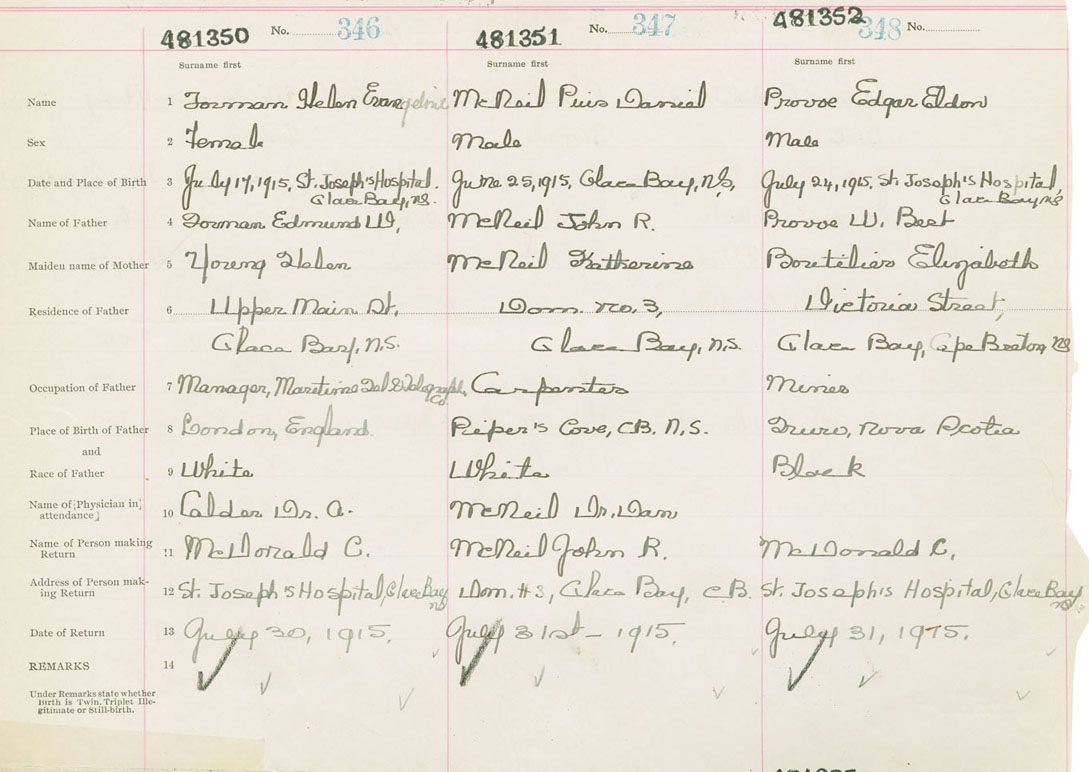 481350 No. 346 481351 No. 347 481352 348 No.
Surname first Surname first Surname first
Name 1 Forman Helen Evangeline McNeil Pius Daniel Provoe Edgar Eldon
Sex 2 Female Male Male
Date and Place of Birth 3 July 17, 1915, St. Joseph's Hospital. June 25, 1915, Glace Bay, N.S., July 24, 1915. St Joseph's Hospital,
Glace Bay, NS. Glace Bay NS
Name of Father 4 Forman Edmund W, McNeil John R. Provoe W. Bert
Maiden name of Mother 5 Young Helen McNeil Katherine Boutilier Elizabeth
Residence of Father 6 Upper Main St. Dom. no. 3, Victoria Street,
Glace Bay, N.S. Glace Bay, N.S. Glace Bay, Cape Breton, NS
Occupation of Father 7 Manager, Maritime Tel & Telegraph Carpenter Miner
Co.
Place of Birth of Father 8 London, England. Pieper's Cove, CB. N.S. Truro, Nova Scotia
and
Race of Father 9 White White Black
Name of [Physician in
attendance] 10 Calder Dr. A. McNeil Dr. Dan
Name of Person making
Return 11 McDonald C. McNeil John R. McDonald C.
Address of Person mak-
ing Return 12 St. Joseph's Hospital, Glace Bay Dom. #3, Glace Bay, C.B. St. Joseph's Hospital, Glace Bay
NS NS
Date of Return 13 July 30, 1915. July 31st - 1915. July 31, 1915.
REMARKS 14
Under Remarks state whether
Birth is Twin, Triplet Ille-
gitimate or Still-birth.